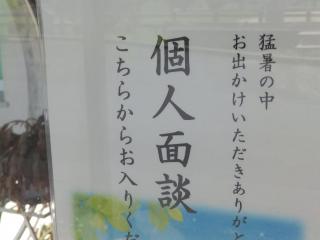 猛暑の中
お出かけいただきありがと
個人面談
こちらからお入りくだ